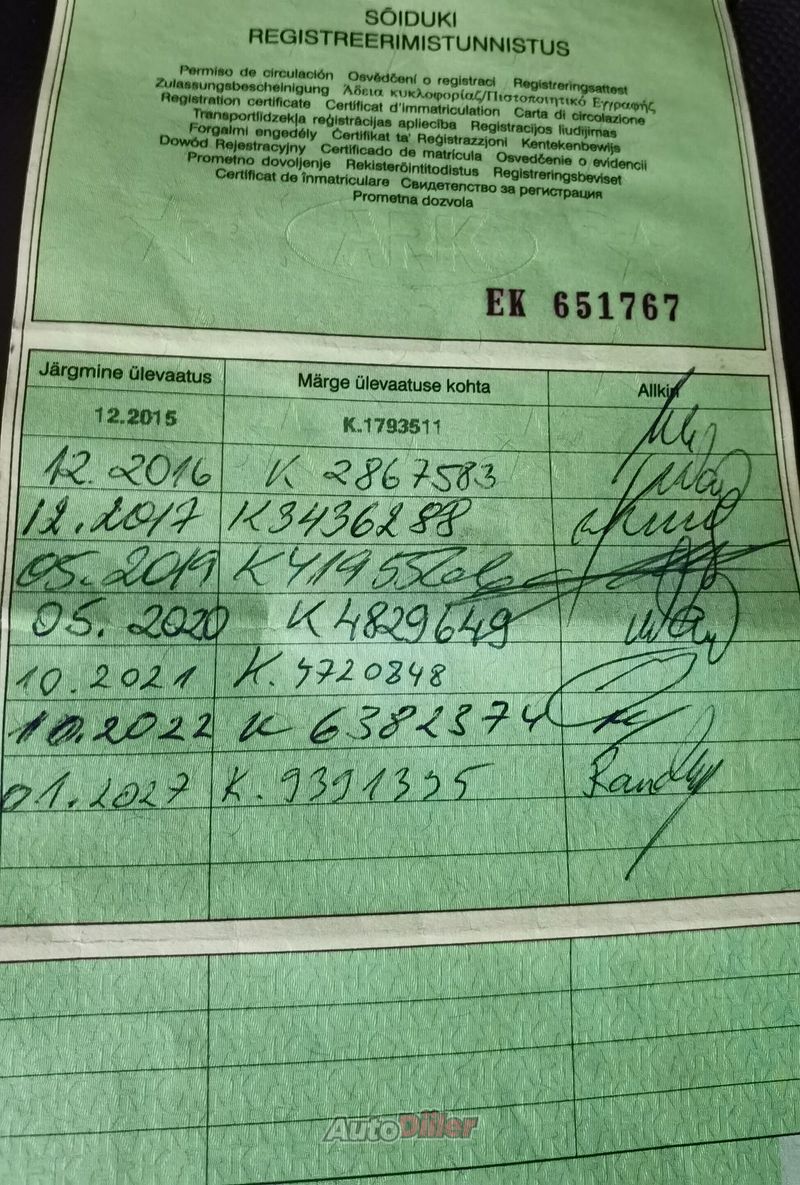 SÕIDUKI
REGISTREERIMISTUNNISTUS
Permiso de circulación Osvědčení o registraci Registreringsattest
Zulassungsbescheinigung Άδεια κυκλοφορίας/Πιστοποιητικό Εγγραφής
Registration certificate Certificat d'immatriculation Carta di circolazione
Transportlīdzekļa reģistrācijas apliecība Registracijos liudijimas
Forgalmi engedély Ċertifikat ta' Reġistrazzjoni Kentekenbewijs
Dowód Rejestracyjny Certificado de matrícula Osvedčenie o evidencii
Prometno dovoljenje Rekisteröintitodistus Registreringsbeviset
Certificat de înmatriculare Свидетелство за регистрация
Prometna dozvola
ARK
EK 651767
Järgmine ülevaatus Märge ülevaatuse kohta Allkiri
12.2015 K.1793511
12.2016 K 2867583
12.2017 K3436288
05.2019
05.2020 K 4829649
10.2021 K.5720848
10.2022 K 6382374
01.2027 K.9391395
AutoDiller